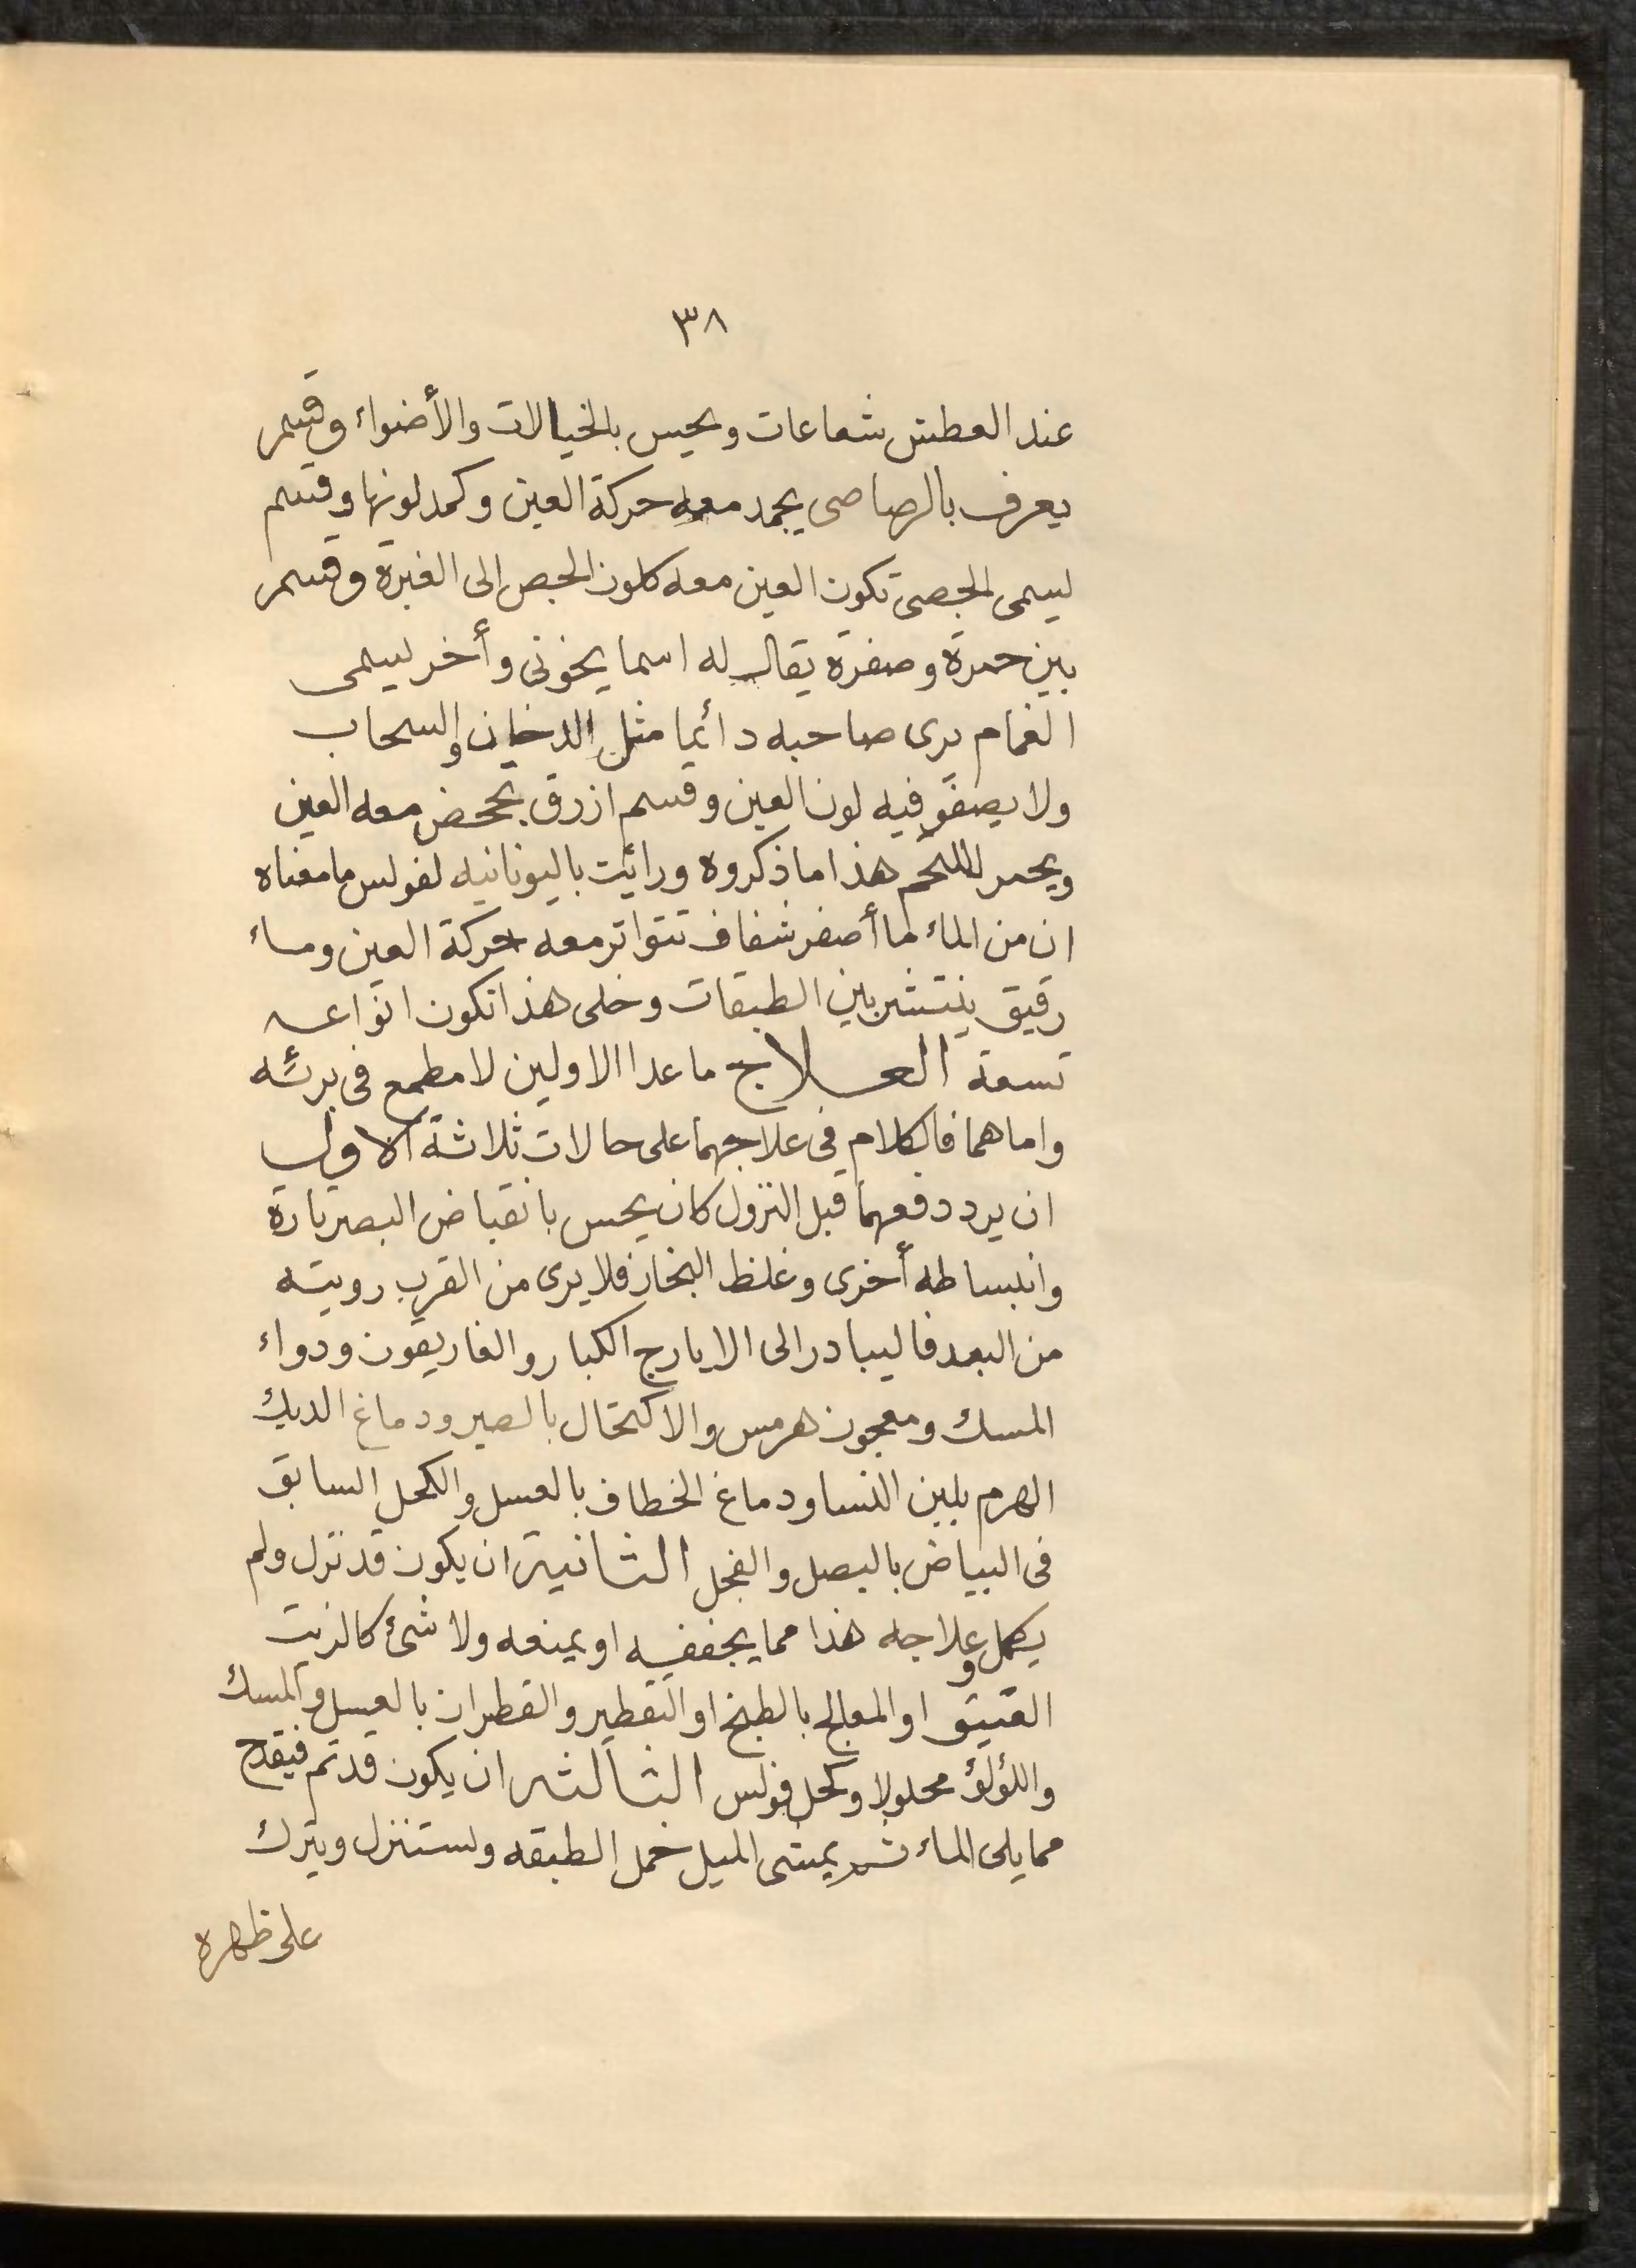 ٣٨
عند العطش شعاعات ويحيس بالخيالات والأضواء وقسم
يعرف بالرصاصى يجمد معه حركة العين وكمد لونها وقسم
ليسمى الجصى تكون العين معه كلون الجص إلى الغبرة وقسم
بين حمرة وصفرة يقال له اسما يخونى وأخر ليسمى
الغمام يرى صاحبه دائما مثل الدخان والسحاب
ولا يصفو فيه لون العين وقسم ازرق تجحض معه العين
ويحمر اللحم هذا ما ذكروه ورائيت باليونانيه لفولس ما معناه
ان من الماء ما أصفر شفاف تتواتر معه حركة العين وماء
رقيق ينتشر بين الطبقات وخلى هذا تكون انواعه
تسعة العلاج ما عدا الاولين لا مطمع فى برئه
واما هما فالكلام فى علاجهما على حالات ثلاثة الاولى
ان يرد دفعهما قبل النزول كان يحس بانقباض البصر تارة
وانبساطه أخرى وغلظ البخار فلا يرى من القرب رويته
من البعد فاليبادر الى الايارج الكبار والغاريقون ودواء
المسك ومعجون هرمس والاكتحال بالصبر ودماغ الديك
الهرم بلبن النسا ودماغ الخطاف بالعسل والكحل السابق
فى البياض بالبصل والفجل الثانية ان يكون قد نزل ولم
يكمل وعلاجه هذا مما يجففه او يمنعه ولا شئ كالزيت
العتيق او المعالج بالطبخ او التقطير والقطران بالعسل والمسك
واللؤلؤ محلولا وكحل فولس الثالثه ان يكون قد تم فيقدح
مما يلى الماء ثم يمشى الميل خمل الطبقه ولستنزل ويترك
على ظهره